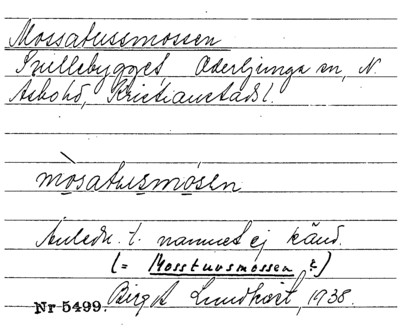 Mossatussmossen
Snillebygget Oderljunga sn, N.
Åsbohd, Kristianstads l.
mòsatusmosen
Anledn. t. namnet ej känd.
(= Mosstuvsmossen ?)
Nr 5499. Birgit Lundkvist, 1938.